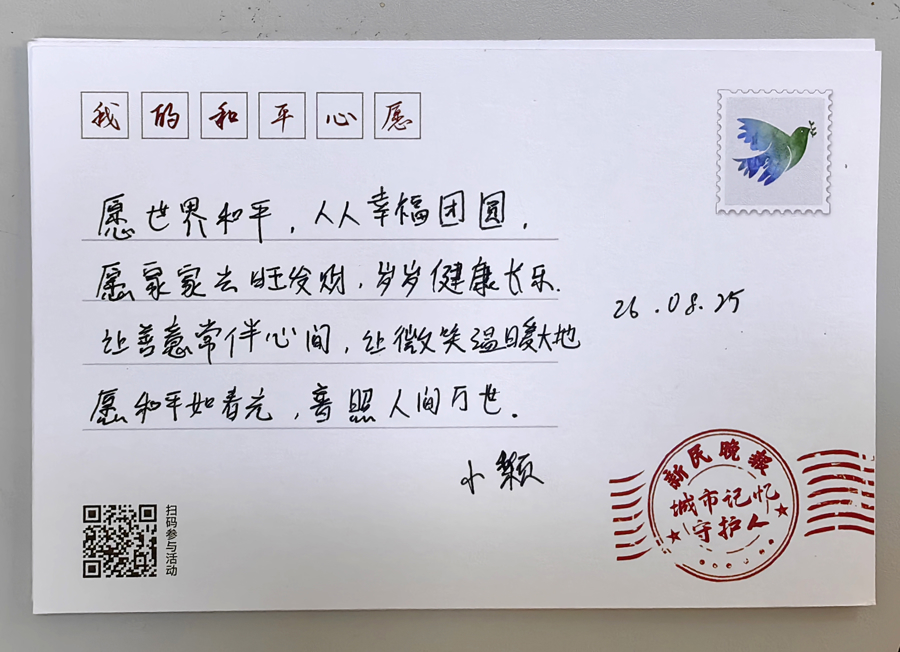 我的和平心愿
愿世界和平，人人幸福团圆，
愿家家去旺发财，岁岁健康长乐.
让善意常伴心间，让微笑温暖大地
愿和平如春光，喜照人间万世.
小颖
26.08.25
新民晚报
城市记忆
守护人
扫码参与活动